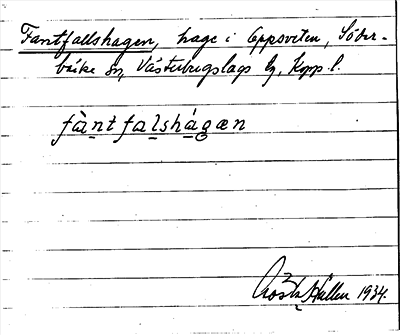 Fantfallshagen, hage i Uppsveten, Söder-
bärke sn, Västerbergslags hg, Kopp. l.
fàntfalshágæn
Gösta Hallen 1934.